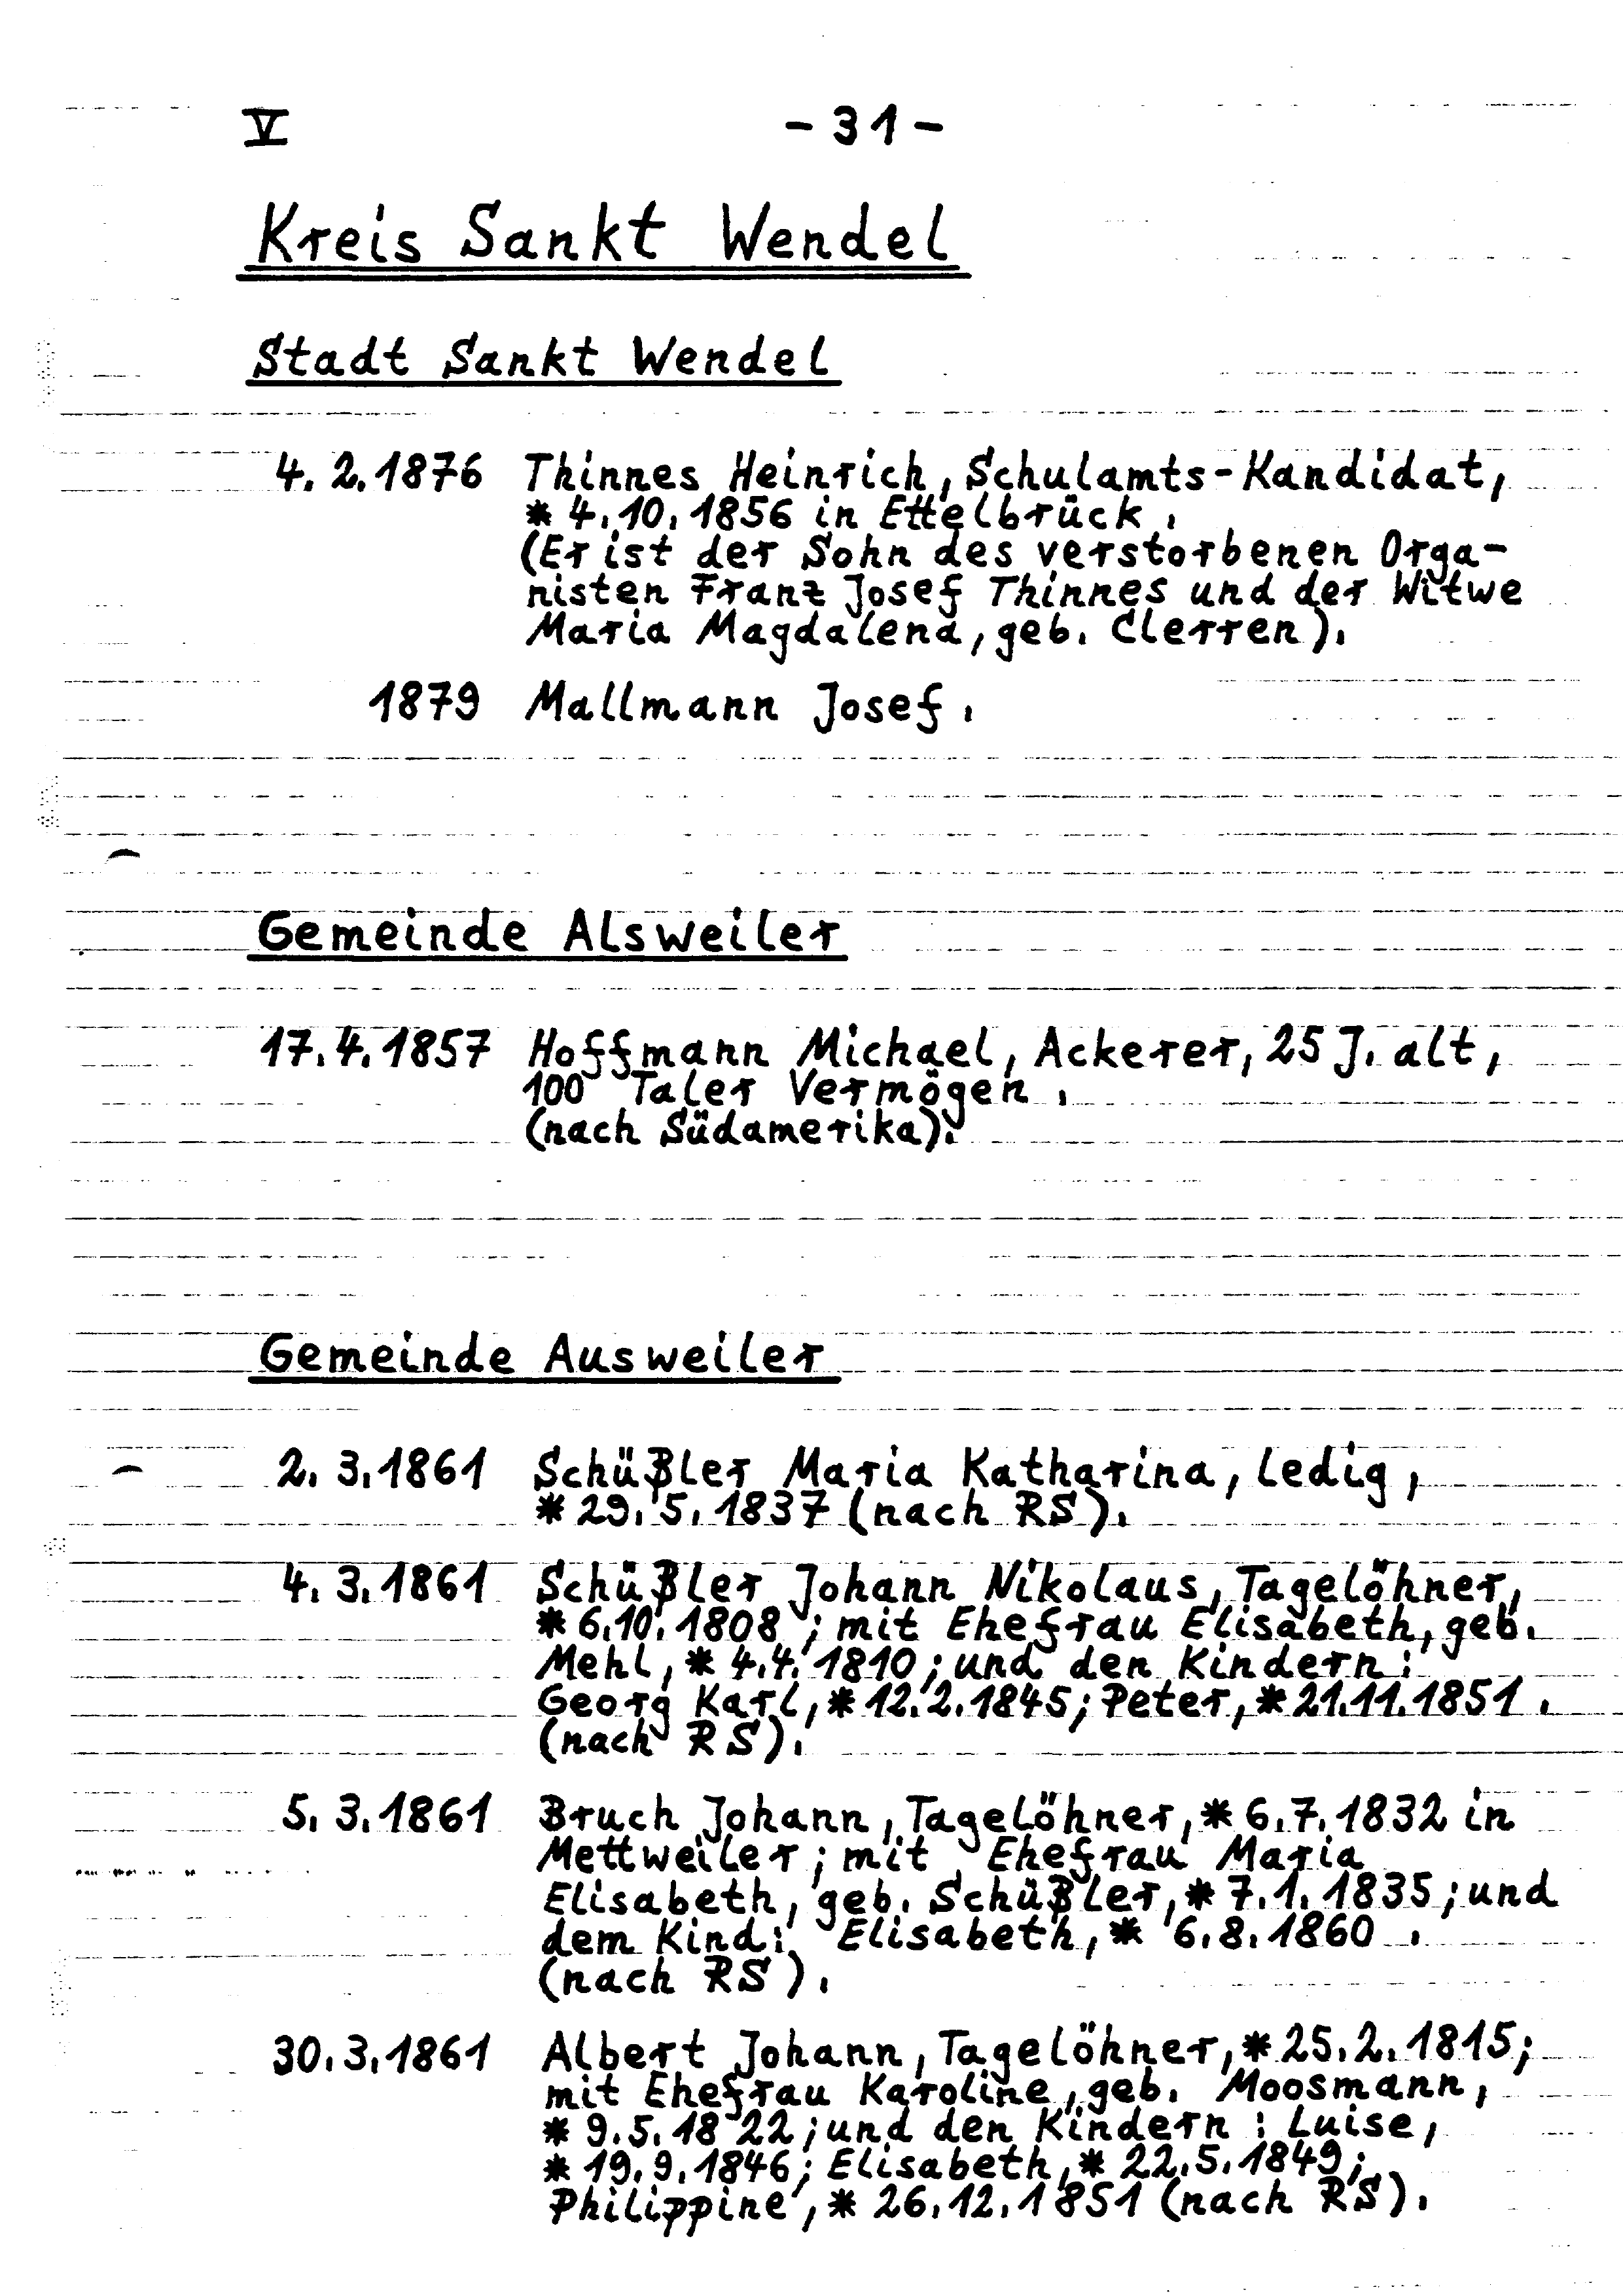 V - 31 -
Kreis Sankt Wendel
Stadt Sankt Wendel
4. 2. 1876 Thinnes Heinrich, Schulamts-Kandidat,
* 4. 10. 1856 in Ettelbrück.
(Er ist der Sohn des verstorbenen Orga-
nisten Franz Josef Thinnes und der Witwe
Maria Magdalena, geb. Clerren).
1879 Mallmann Josef.
Gemeinde Alsweiler
17. 4. 1857 Hoffmann Michael, Ackerer, 25 J. alt,
100 Taler Vermögen.
(nach Südamerika).
Gemeinde Ausweiler
2. 3. 1861 Schüßler Maria Katharina, ledig,
* 29. 5. 1837 (nach RS).
4. 3. 1861 Schüßler Johann Nikolaus, Tagelöhner,
* 6. 10. 1808; mit Ehefrau Elisabeth, geb.
Mehl, * 4. 4. 1810; und den Kindern:
Georg Karl, * 12. 2. 1845; Peter, * 21. 11. 1851.
(nach RS).
5. 3. 1861 Bruch Johann, Tagelöhner, * 6. 7. 1832 in
Mettweiler; mit Ehefrau Maria
Elisabeth, geb. Schüßler, * 7. 1. 1835; und
dem Kind: Elisabeth, * 6. 8. 1860.
(nach RS).
30. 3. 1861 Albert Johann, Tagelöhner, * 25. 2. 1815;
mit Ehefrau Karoline, geb. Moosmann,
* 9. 5. 1822; und den Kindern: Luise,
* 19. 9. 1846; Elisabeth, * 22. 5. 1849;
Philippine, * 26. 12. 1851 (nach RS).